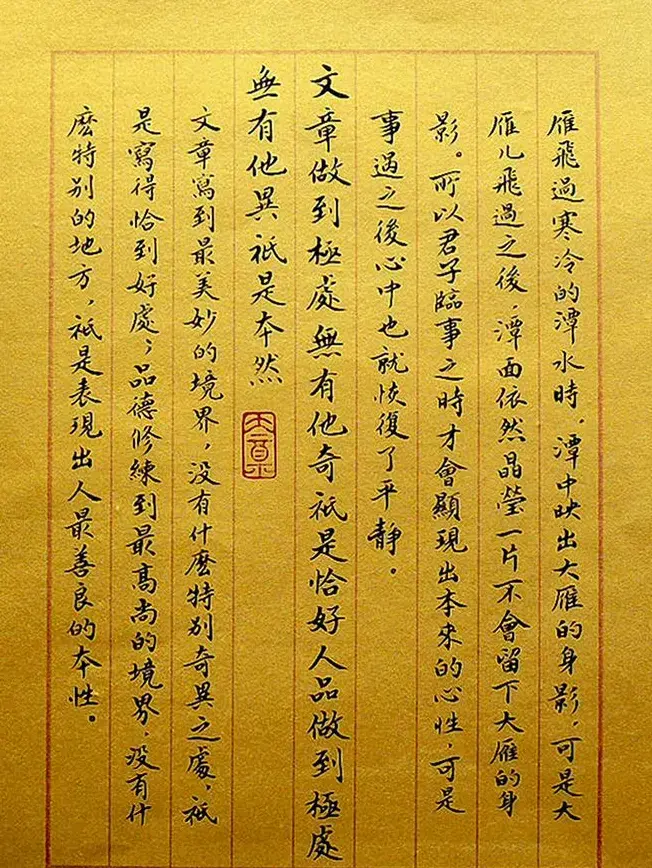 雁飛過寒冷的潭水時，潭中映出大雁的身影，可是大
雁儿飛過之後，潭面依然晶瑩一片不會留下大雁的身
影。所以君子臨事之時才會顯現出本來的心性，可是
事過之後心中也就恢復了平靜。
文章做到極處無有他奇祇是恰好人品做到極處
無有他異祇是本然
文章寫到最美妙的境界，没有什麼特别奇異之處，祇
是寫得恰到好處；品德修練到最高尚的境界，没有什
麽特别的地方，祇是表現出人最善良的本性。